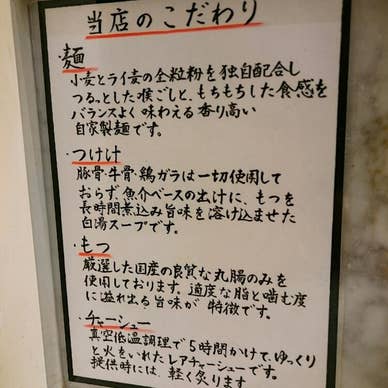 当店のこだわり
・麺
小麦とライ麦の全粒粉を独自配合し
つるっとした喉ごしと、もちもちした食感を
バランスよく味わえる香り高い
自家製麺です。
・つけ汁
豚骨・牛骨・鶏ガラは一切使用して
おらず魚介ベースの出汁に、もつを
長時間煮込み旨味を溶け込ませた
白湯スープです。
・もつ
厳選した国産の良質な丸腸のみを
使用しております。適度な脂と噛む度
に溢れ出る旨味が特徴です。
・チャーシュー
真空低温調理で5時間かけて、ゆっくり
と火をいれたレアチャーシューです。
提供時には、軽く炙ります